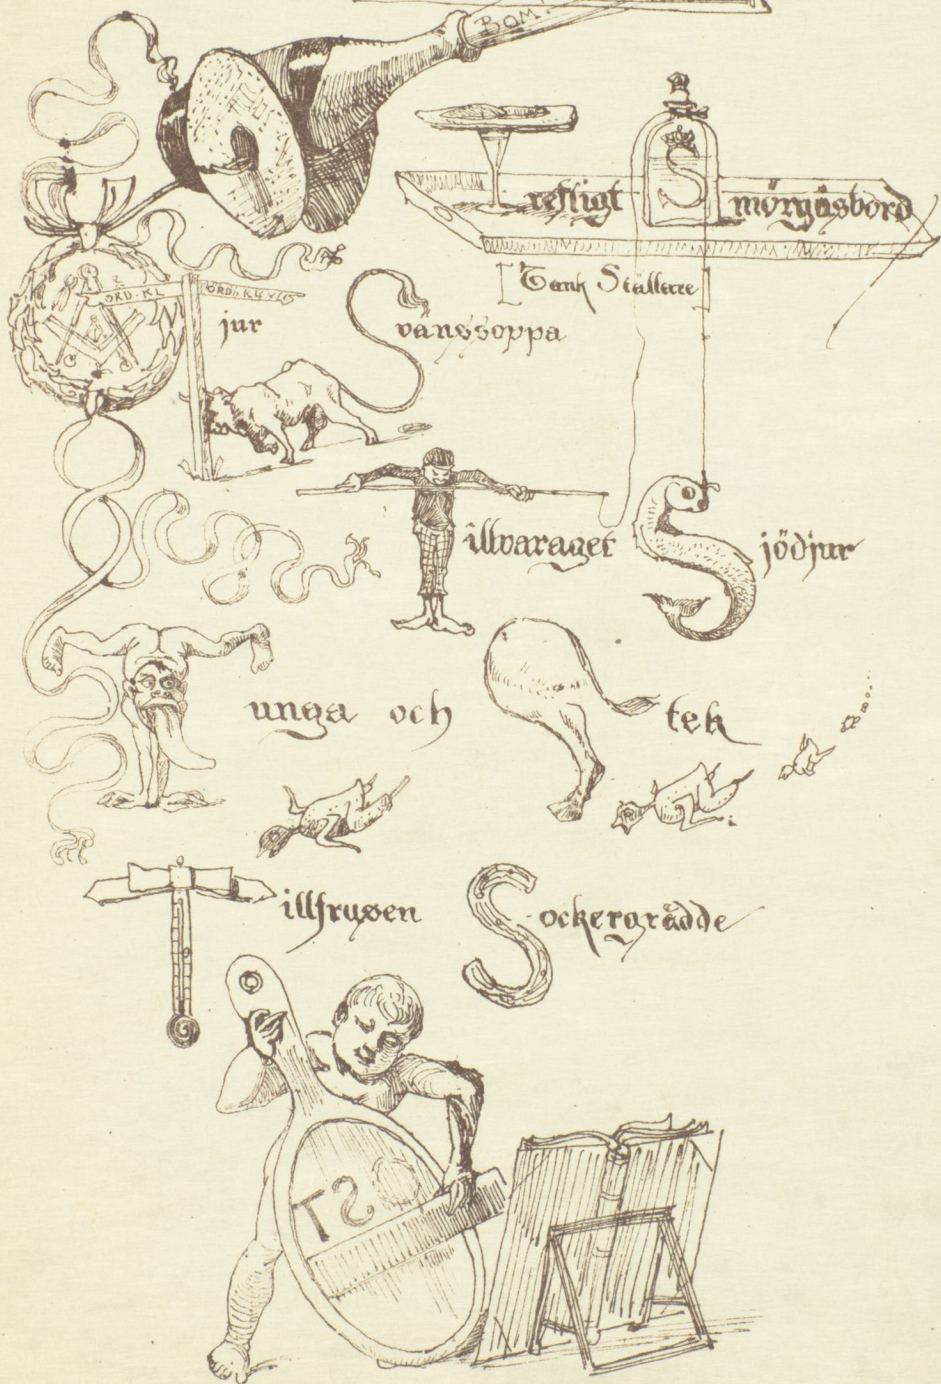 BOM!
Trefligt Smörgåsbord
[Tank Ställare]
ORD. KL
Tjur Svanssoppa
Tillvaraget Sjödjur
Tunga och Stek
Tillfrusen Sockergrädde
OST